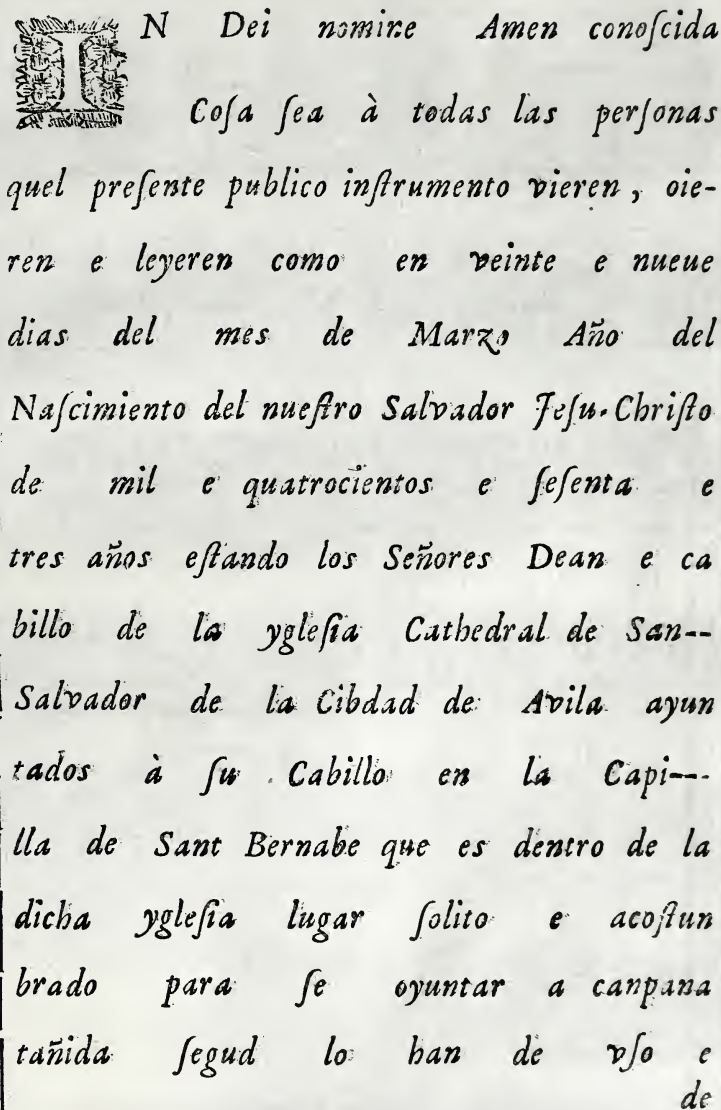 IN Dei nomine Amen conoſcida
Coſa ſea à todas las perſonas
quel preſente publico inſtrumento vieren, oie-
ren e leyeren como en veinte e nueue
dias del mes de Marzo Año del
Naſcimiento del nueſtro Salvador Jeſu-Chriſto
de mil e quatrocientos e ſeſenta e
tres años eſtando los Señores Dean e ca
billo de la ygleſia Cathedral de San--
Salvador de la Cibdad de Avila ayun
tados à ſu Cabillo en la Capi---
lla de Sant Bernabe que es dentro de la
dicha ygleſia lugar ſolito e acoſtun
brado para ſe oyuntar a canpana
tañida ſegud lo han de vſo e
de